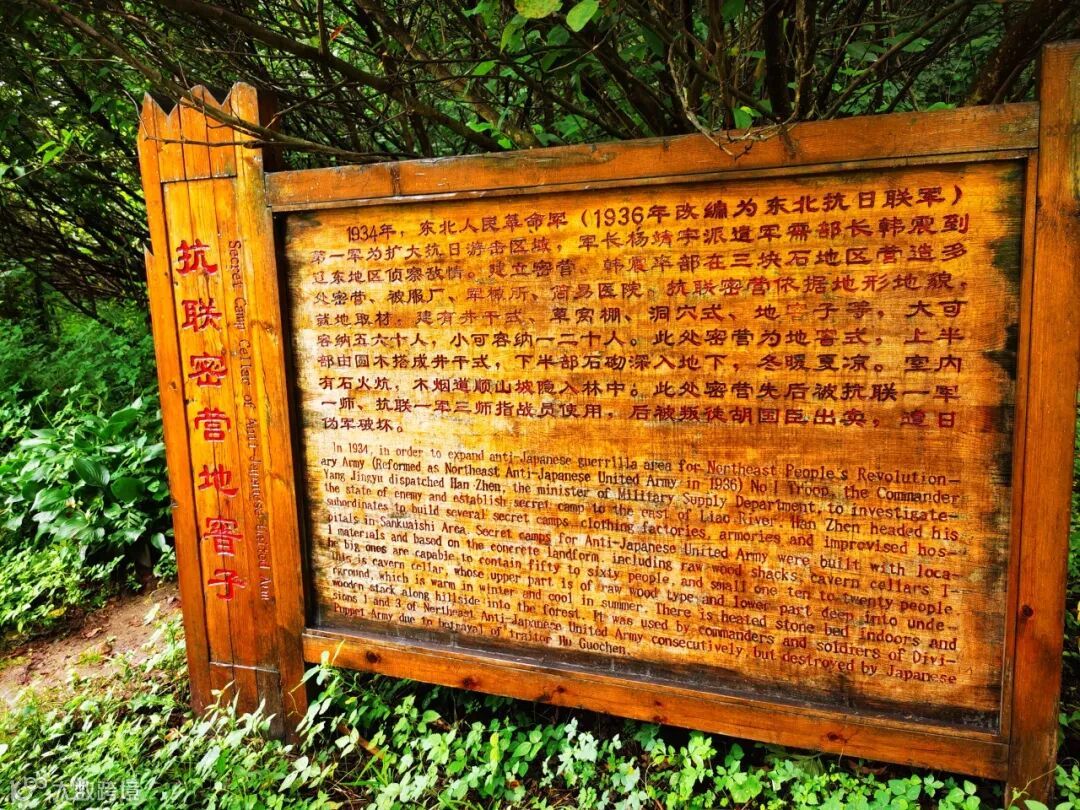 抗联密营地窨子
Secret Camp Cellar of Anti-Japanese United Army
1934年，东北人民革命军（1936年改编为东北抗日联军）
第一军为扩大抗日游击区域，军长杨靖宇派遣军需部长韩震到
辽东地区侦察敌情。建立密营、韩震率部在三块石地区营造多
处密营、被服厂、军械所、简易医院。抗联密营依据地形地貌，
就地取材，建有井干式、草窝棚、洞穴式、地窨子等，大可
容纳五六十人，小可容纳一二十人。此处密营为地窨式，上半
部由圆木搭成井干式，下半部石砌深入地下，冬暖夏凉。室内
有石火炕，木烟道顺山坡隐入林中。此处密营先后被抗联一军
一师、抗联一军三师指战员使用，后被叛徒胡国臣出卖，遭日
伪军破坏。
In 1934, in order to expand anti-Japanese guerrilla area for Northeast People's Revolution-
ary Army (Reformed as Northeast Anti-Japanese United Army in 1936) No.1 Troop, the Commander
Yang Jingyu dispatched Han Zhen, the minister of Military Supply Department, to investigate
the state of enemy and establish secret camp to the east of Liao River. Han Zhen headed his
subordinates to build several secret camps, clothing factories, armories and improvised hos-
pitals in Sankuaishi Area. Secret camps for Anti-Japanese United Army were built with loca-
l materials and based on the concrete landform, including raw wood shacks, cavern cellars.
he big ones are capable to contain fifty to sixty people, and small one ten to twenty people.
This is cavern cellar, whose upper part is of raw wood type and lower part deep into unde-
rground, which is warm in winter and cool in summer. There is heated stone bed indoors and
wooden stack along hillside into the forest. It was used by commanders and soldiers of Divi-
sions 1 and 3 of Northeast Anti-Japanese United Army consecutively but destroyed by Japanese
Puppet Army due to betrayal of traitor Hu Guochen.
大数跨境